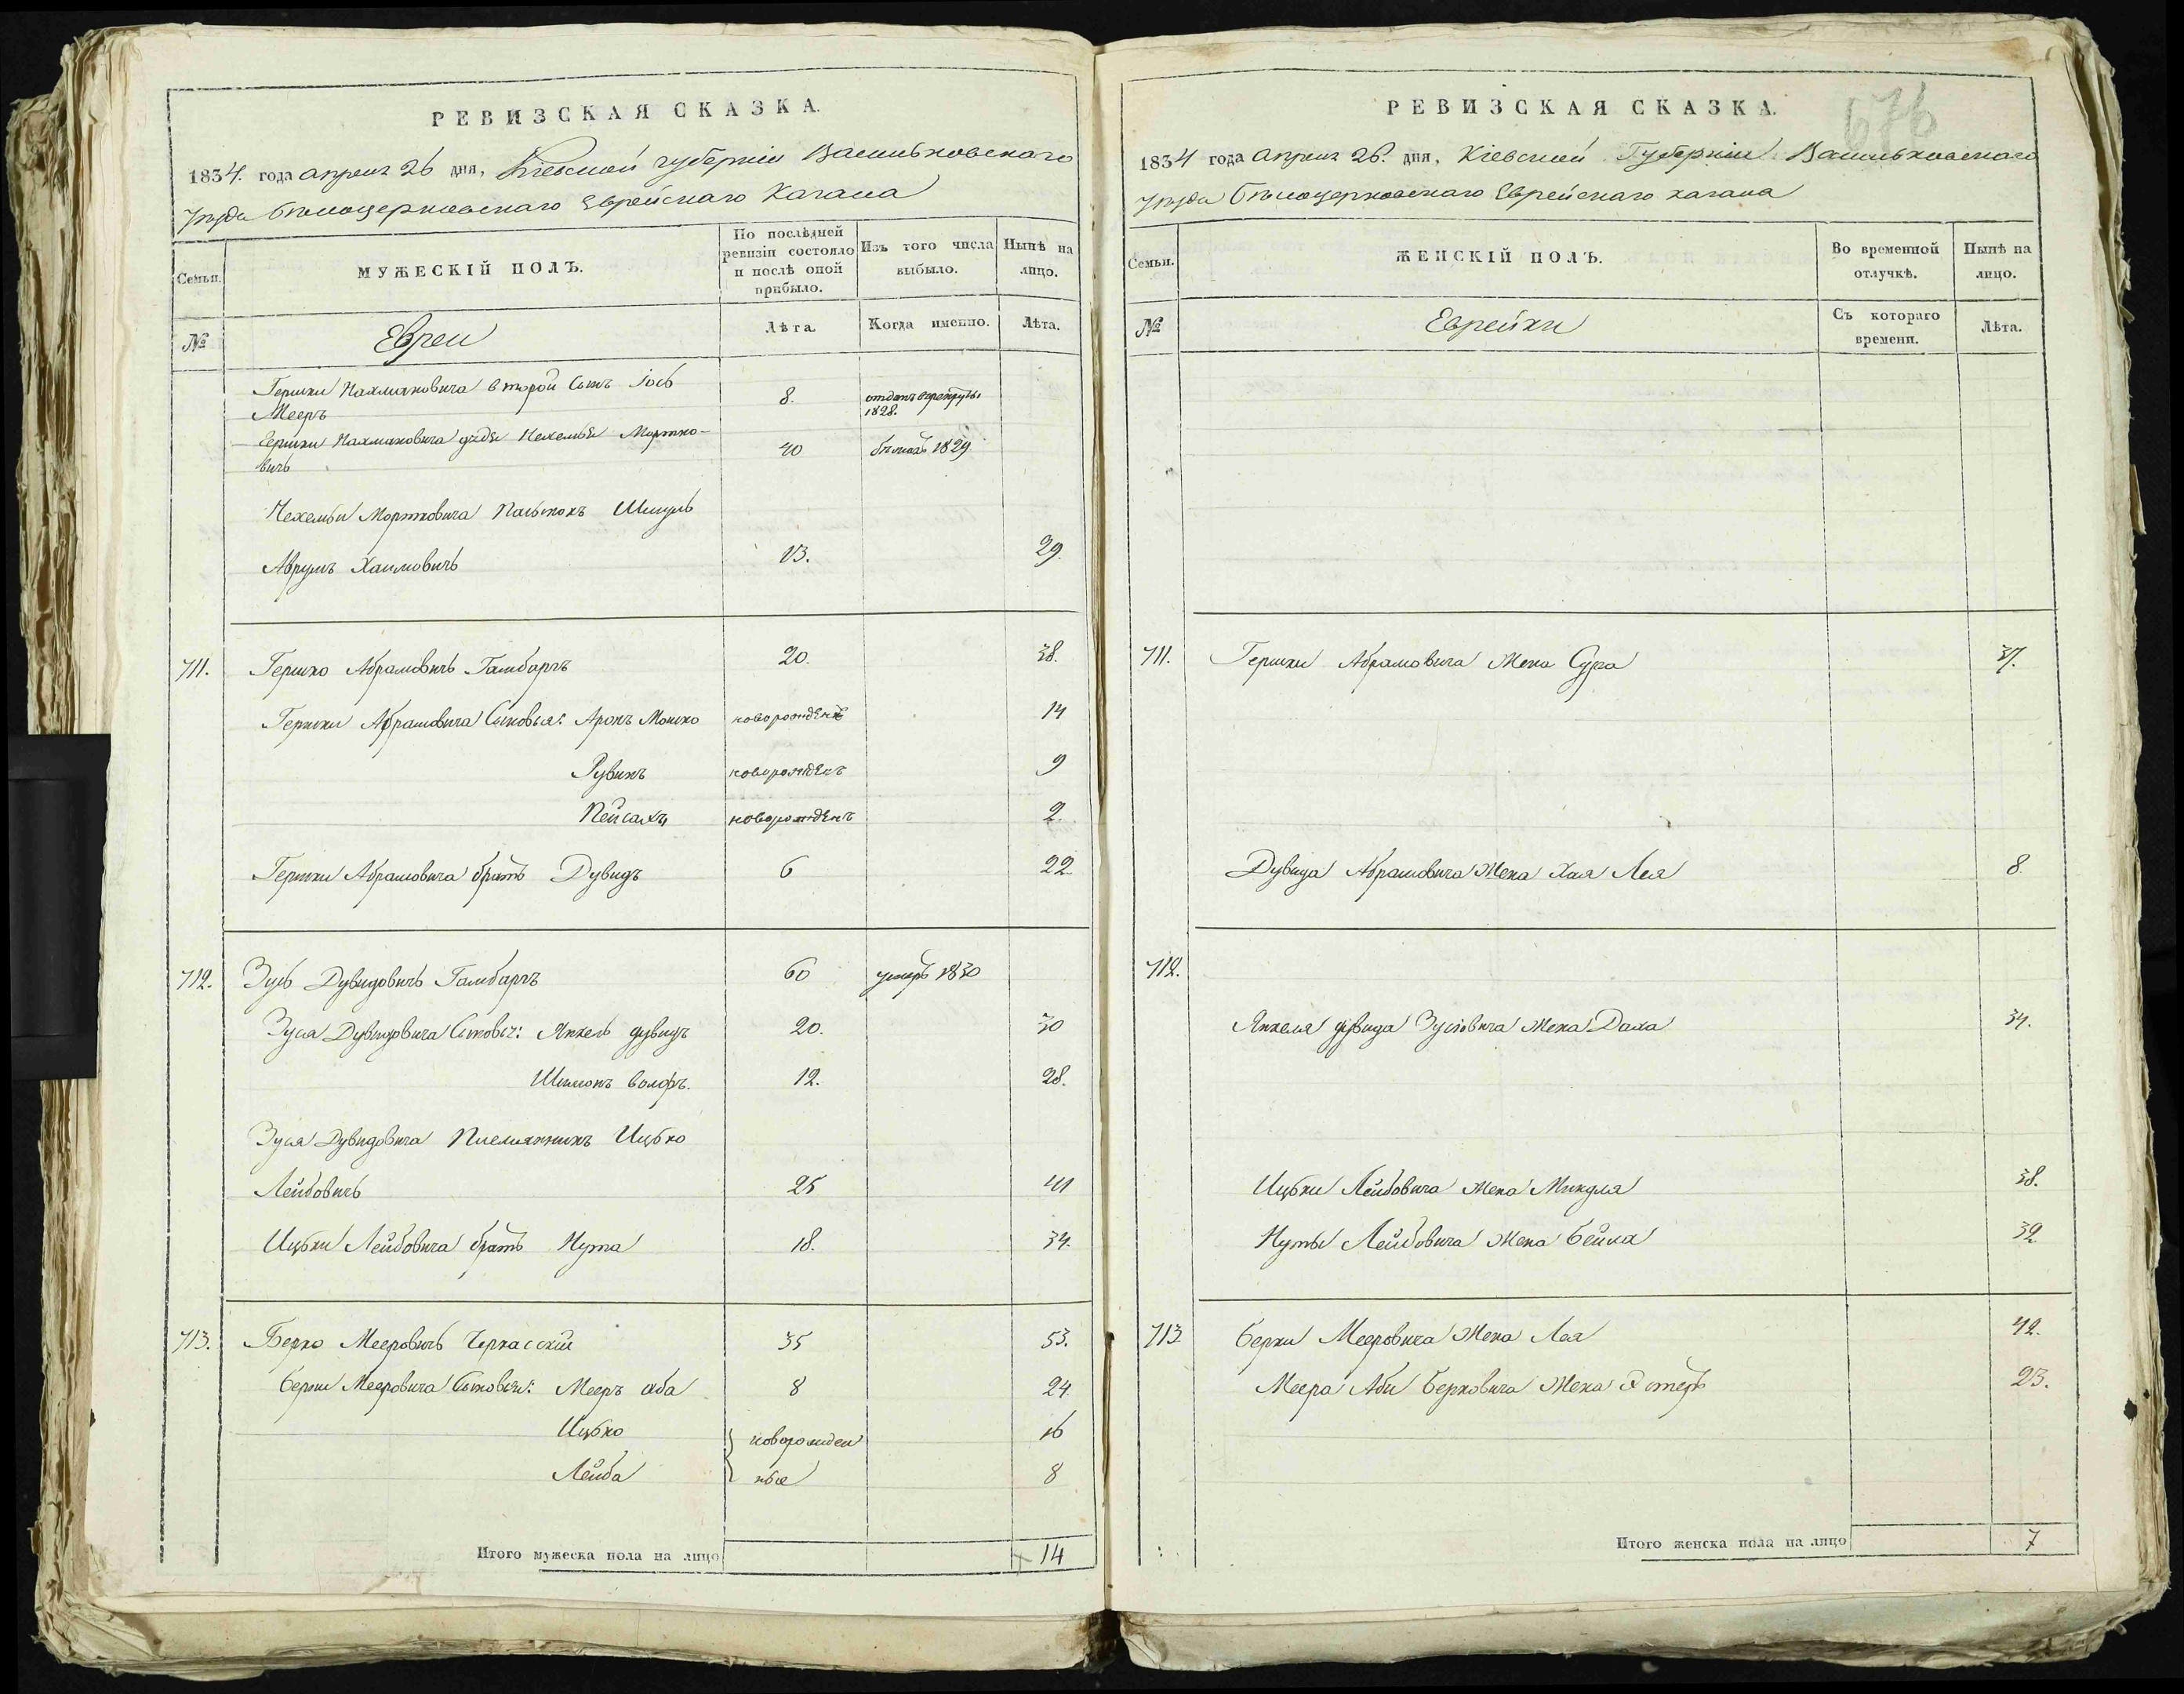 РЕВИЗСКАЯ СКАЗКА.
1834. года апреля 26 дня, Кіевской губерніи Васильковскаго
уезда белоцерковскаго Еврейскаго Кагала
Семьи.
МУЖЕСКІЙ ПОЛЪ.
По послѣдней ревизіи состояло и послѣ оной прибыло.
Изъ того числа выбыло.
Нынѣ на лицо.
№
Евреи
Лѣта.
Когда именно.
Лѣта.
Гершки Нахмановича второй Сынъ Іось
Мееръ 8. отданъ врекруты 1828.
Гершки Нахмановича дядя Нехемья Мортко-
вичь 40 1829
Нехемьи Мортковича Пасынокъ Шмуль
Аврумъ Хаимовичь 13. 29.
711. Гершко Абрамовичь Гамбаргъ 20. 38.
Гершки Абрамовича Сыновья: Аронъ Мошко новорожденъ 14
Рувинъ новорожденъ 9
Пейсахъ новорожденъ 2.
Гершки Абрамовича братъ Дувидъ 6 22
712. Зусь Дувидовичь Гамбаргъ 60 умеръ 1830
Зуся Дувидовича Сыновья: Янкель дувидъ 20. 30
Шимонъ волфъ. 12. 28.
Зуся Дувидовича Племянникъ Ицько
Лейбовичь 25 41
Ицьки Лейбовича братъ Нута 18. 34.
713. Берко Мееровичь Черкасскій 35 53.
берки Мееровича Сыновья: Мееръ аба 8 24.
Ицько новорожден 16
Лейба ные 8
Итого мужеска пола на лицо 14
РЕВИЗСКАЯ СКАЗКА.
676
1834 года апреля 26. дня, Кіевской Губерніи Васильковскаго
уезда белоцерковскаго Еврейскаго кагала
Семьи.
ЖЕНСКІЙ ПОЛЪ.
Во временной отлучкѣ.
Нынѣ на лицо.
№
Еврейки
Съ котораго времени.
Лѣта.
711. Гершки Абрамовича Жена Сура 37.
Дувида Абрамовича Жена Хая Лея 8
712.
Янкеля дувида Зусіовича Жена 34.
Ицьки Лейбовича Жена 38.
Нуты Лейбовича Жена бейла 32
713 берки Мееровича Жена Лея 42.
Меера Аби берковича Жена Эстеръ 23.
Итого женска пола на лицо 7